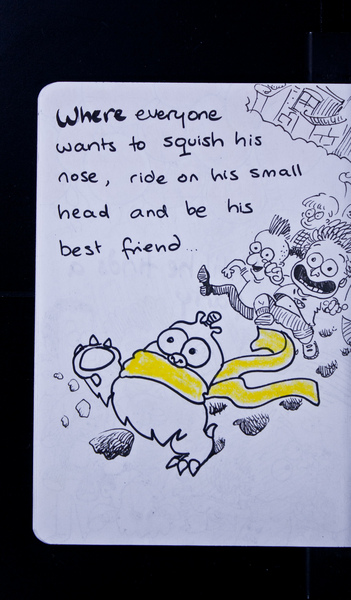 Where everyone
wants to squish his
nose, ride on his small
head and be his
best friend...